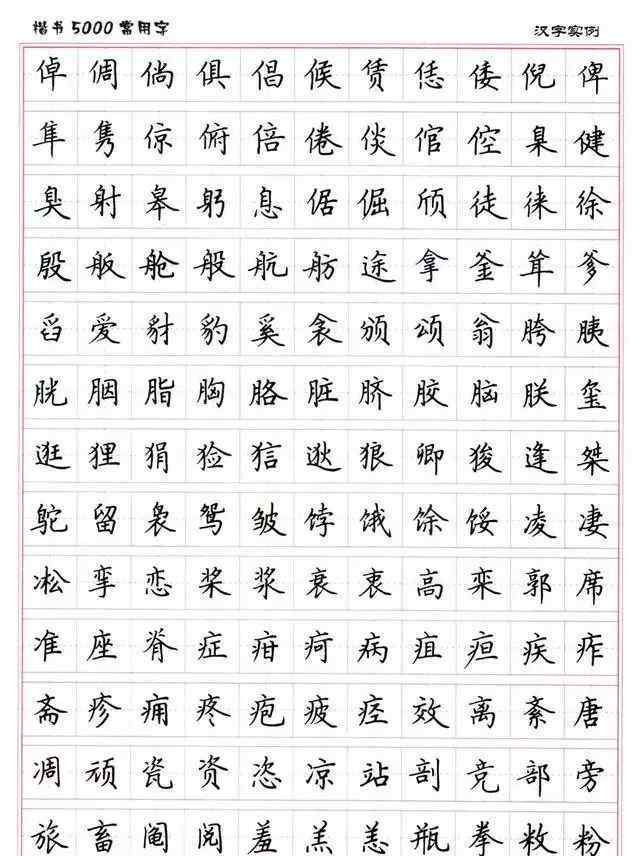 楷书5000常用字 汉字实例
倬 倜 倘 俱 倡 候 赁 恁 倭 倪 俾
隼 隽 倞 俯 倍 倦 倓 倌 倥 臬 健
臭 射 皋 躬 息 倨 倔 颀 徒 徕 徐
殷 舨 舱 般 航 舫 途 拿 釜 耸 爹
舀 爱 豺 豹 奚 衾 颁 颂 翁 胯 胰
胱 胭 脂 胸 胳 脏 脐 胶 脑 朕 玺
逛 狸 狷 猃 狺 逖 狼 卿 狻 逢 桀
鸵 留 袅 鸳 皱 饽 饿 馀 馁 凌 凄
凇 挛 恋 桨 浆 衰 衷 高 栾 郭 席
准 座 脊 症 疳 疴 病 疽 疸 疾 痄
斋 疹 痈 疼 疱 疲 痉 效 离 紊 唐
凋 颃 瓷 资 恣 凉 站 剖 竞 部 旁
旅 畜 阄 阅 羞 羔 恙 瓶 拳 敉 粉